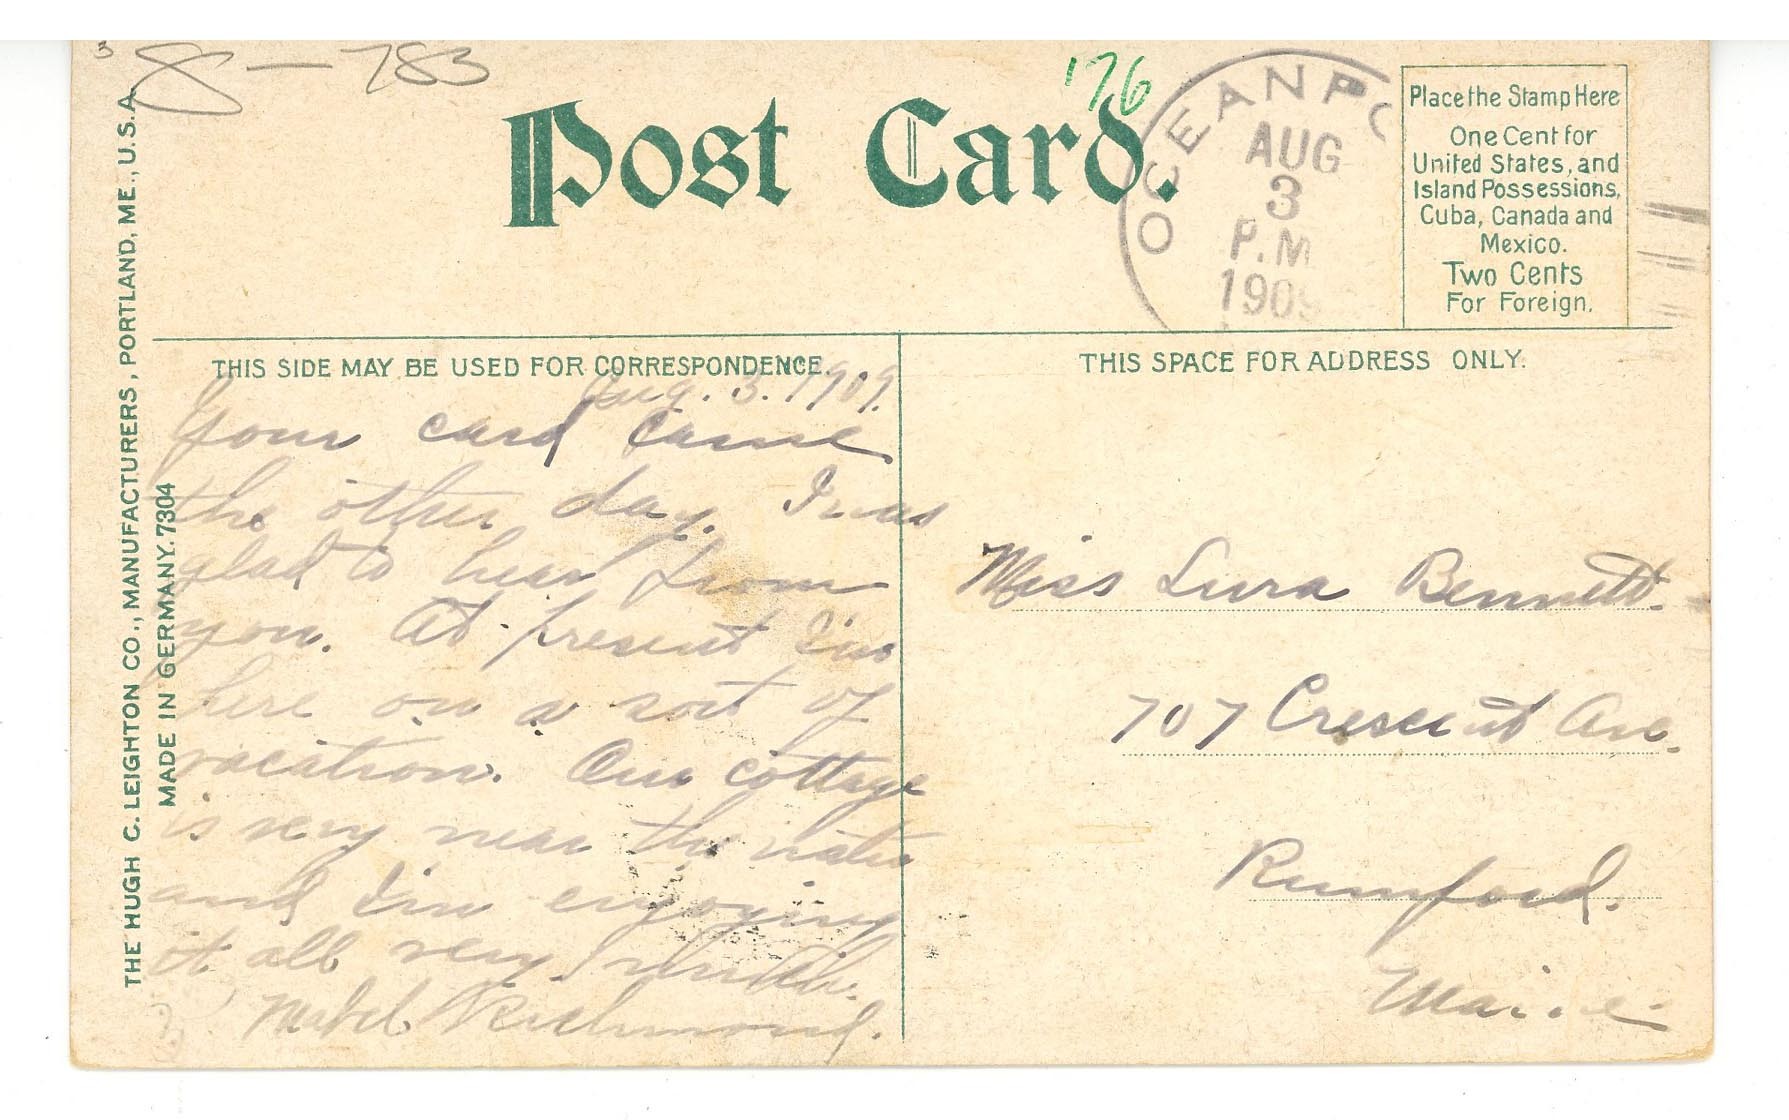 8 — 783
176
Post Card.
OCEANP
AUG
3
P.M
1909
Place the Stamp Here
One Cent for
United States, and
Island Possessions,
Cuba, Canada and
Mexico.
Two Cents
For Foreign.
THE HUGH C. LEIGHTON CO., MANUFACTURERS, PORTLAND, ME., U.S.A.
MADE IN GERMANY. 7304
THIS SIDE MAY BE USED FOR CORRESPONDENCE.
Aug. 3. 1909.
Your card came
the other day. I was
glad to hear from
you. At present I'm
here on a sort of
vacation. Our cottage
is very near the water
and I'm enjoying
it all very much.
Mabel Richmond.
THIS SPACE FOR ADDRESS ONLY.
Miss Lura Bennett.
707 Crescent Ave.
Rumford.
Maine